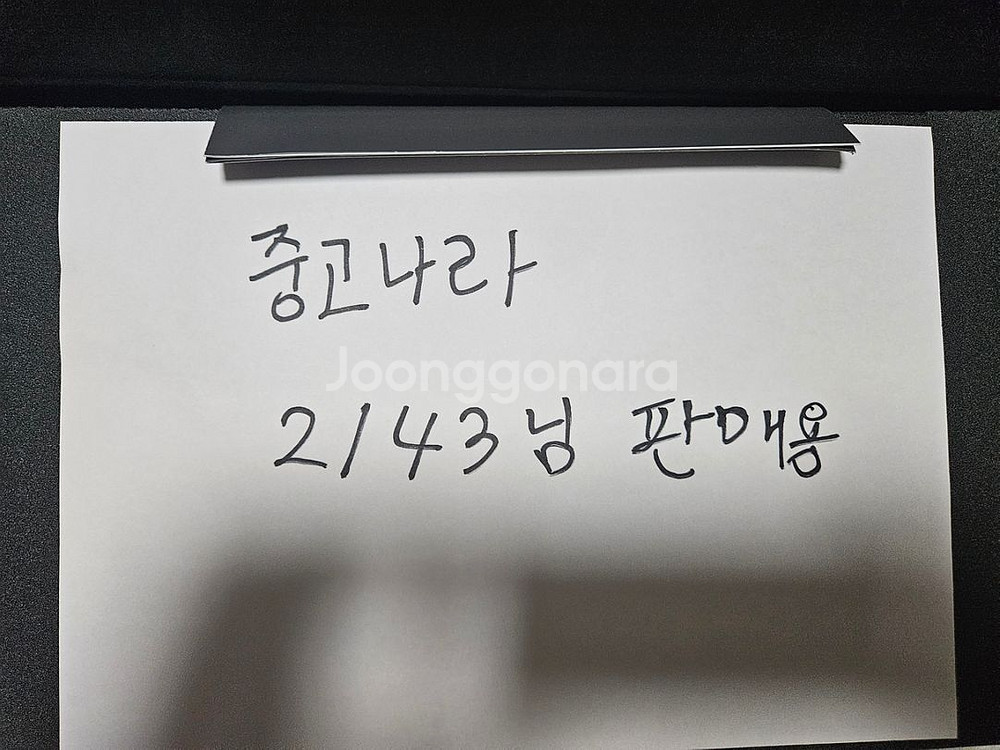 중고나라
Joonggonara
2143님 판매용